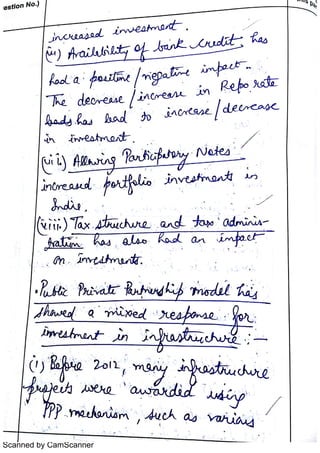 estion No.)
increased investment.
(vi) Availability of bank credit has
had a positive/negative impact.
The decrease/increase in Repo rate
leads has lead to increase/decrease
in investment.
(vii) Allowing Participatory Notes
increased portfolio investments in
India.
(viii) Tax structure and tax adminis-
tration has also had an impact
on investments.
• Public Private Partnership model has
showed a mixed response for
investment in infrastructure :—
(i) Before 2012, many infrastructure
projects were awarded using
PPP mechanism, such as various
Scanned by CamScanner